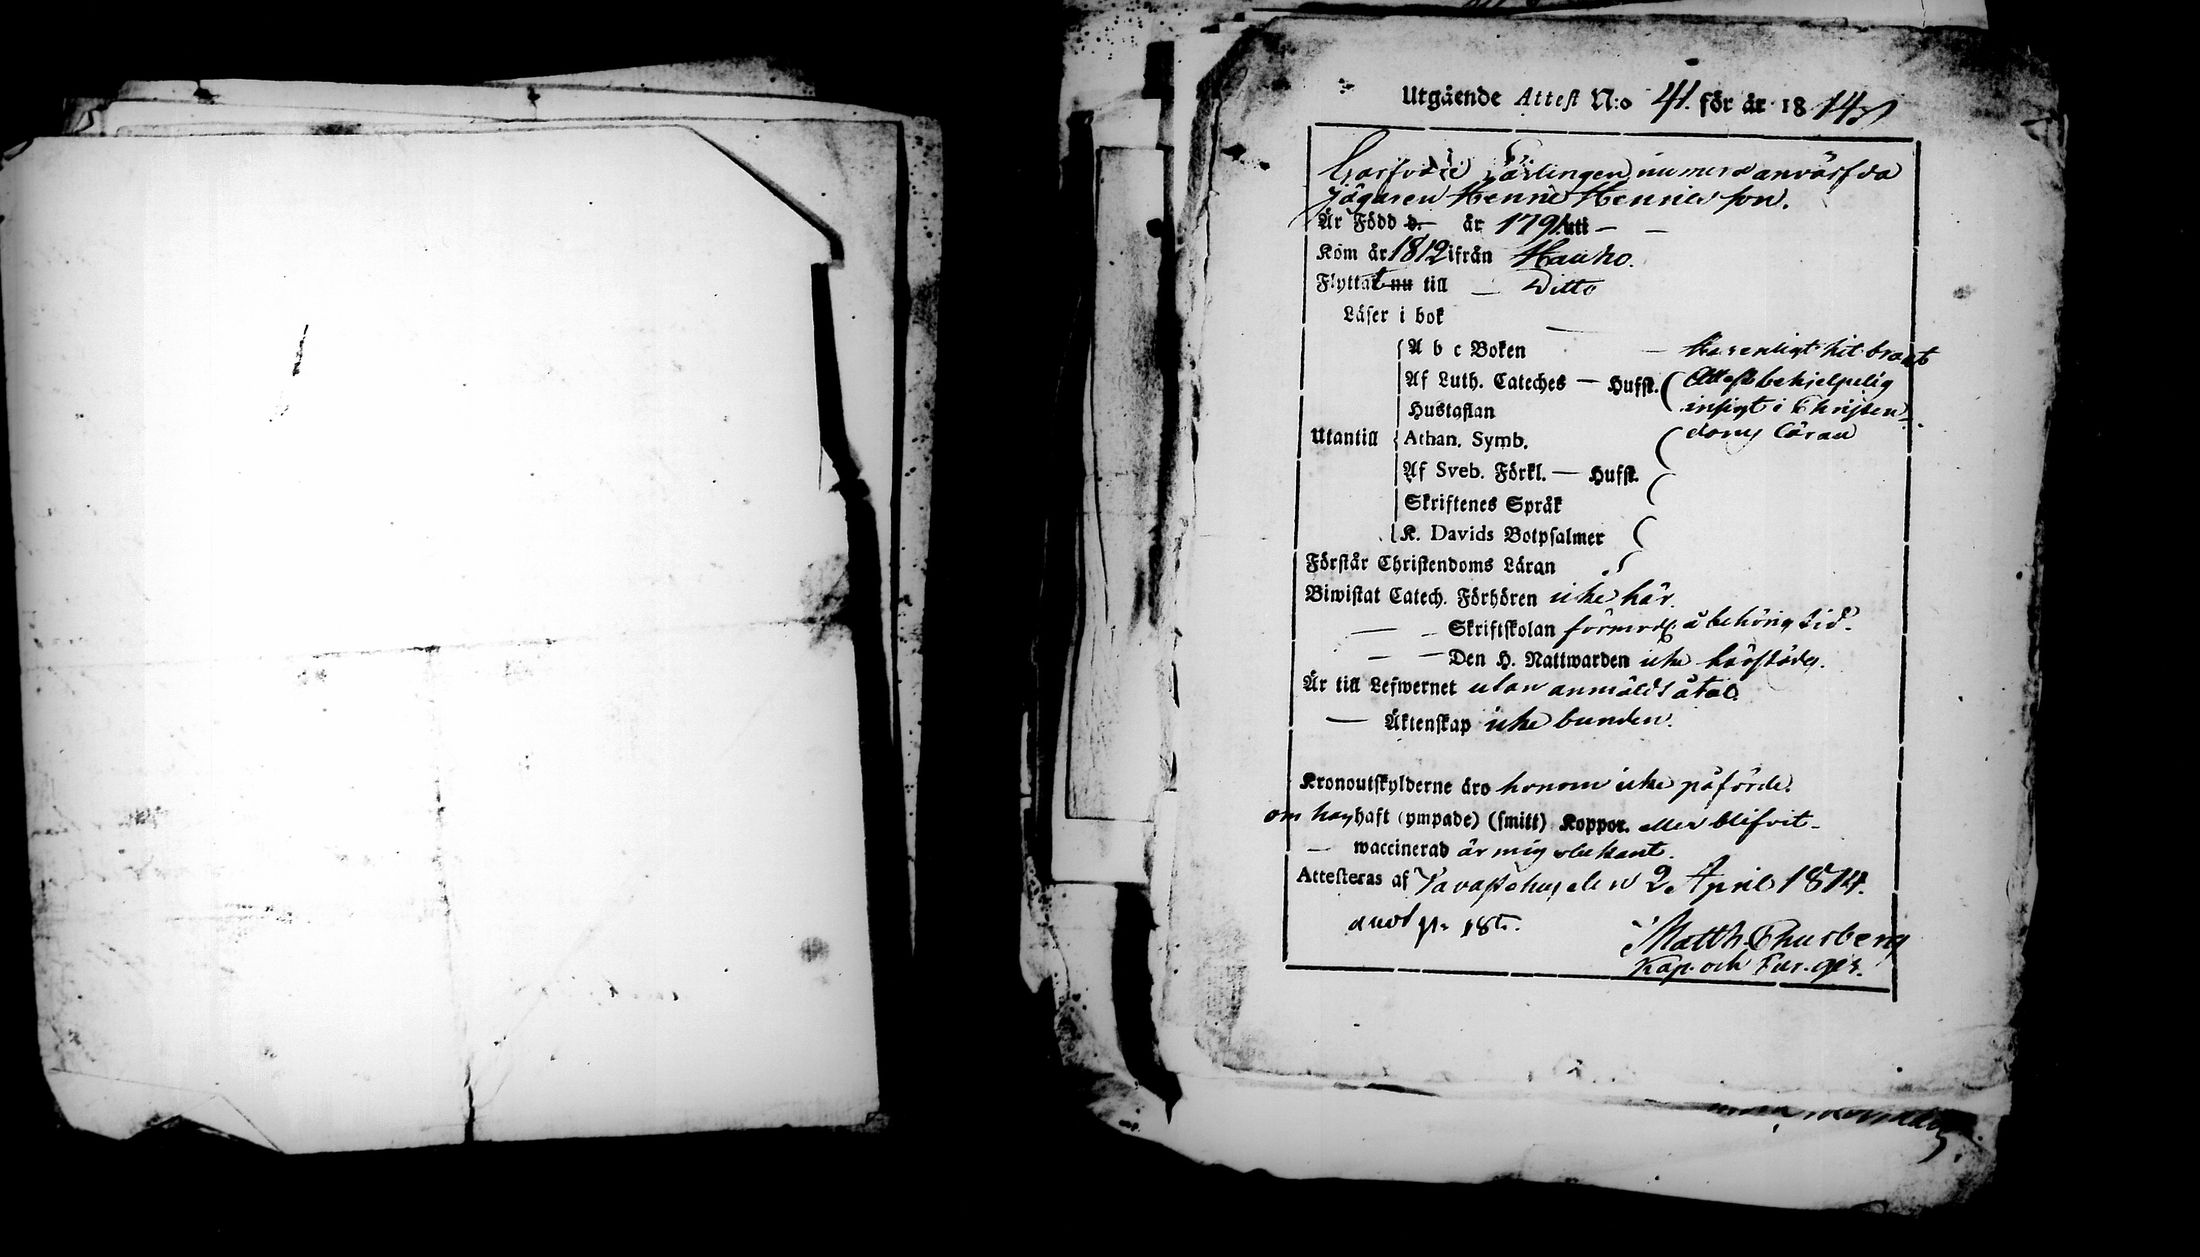 Utgående Attest N:o 41. för år 1814
Garfvare Lärlingen numera anvärfda
Jägaren Henric Henricsson.
År Född d. år 1791. uti — —
Kom år 1812 ifrån Hauho.
Flyttat nu till — Ditto
Läser i bok —
A b c Boken — enligt hit bragt
Af Luth. Cateches — Hufst. Attest behjelpelig
Hustaflan insigt i Christen-
Utantill Athan. Symb. doms Läran
Af Sveb. Förkl. — Hufst.
Skriftenes Språk
K. Davids Botpsalmer
Förstår Christendoms Läran
Biwistat Catech. Förhören icke här.
— — Skriftskolan förmodl. å behörig tid.
— — Den H. Nattwarden icke härstädes.
Är till Lefwernet utan anmäldt åtal
— Äktenskap icke bunden.
Kronoutskylderne äro honom icke påförde.
om han haft (ympade) (smitt) Koppor. eller blifvit
— waccinerad är mig obekant.
Attesteras af Tavastehus den 2 April 1814.
Matth.
Kap. och